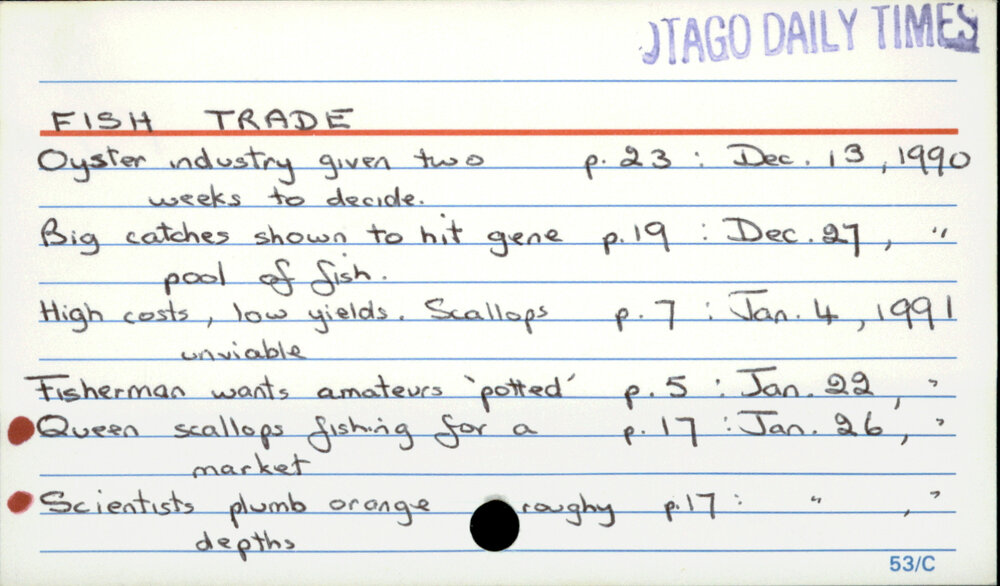 OTAGO DAILY TIMES
FISH TRADE
Oyster industry given two p. 23 : Dec. 13, 1990
weeks to decide.
Big catches shown to hit gene p.19 : Dec. 27, "
pool of fish.
High costs, low yields. Scallops p. 7 : Jan. 4, 1991
unviable
Fisherman wants amateurs 'potted' p. 5 : Jan. 22, "
Queen scallops fishing for a p. 17 : Jan. 26, "
market
Scientists plumb orange roughy p.17 : " , "
depths
53/C